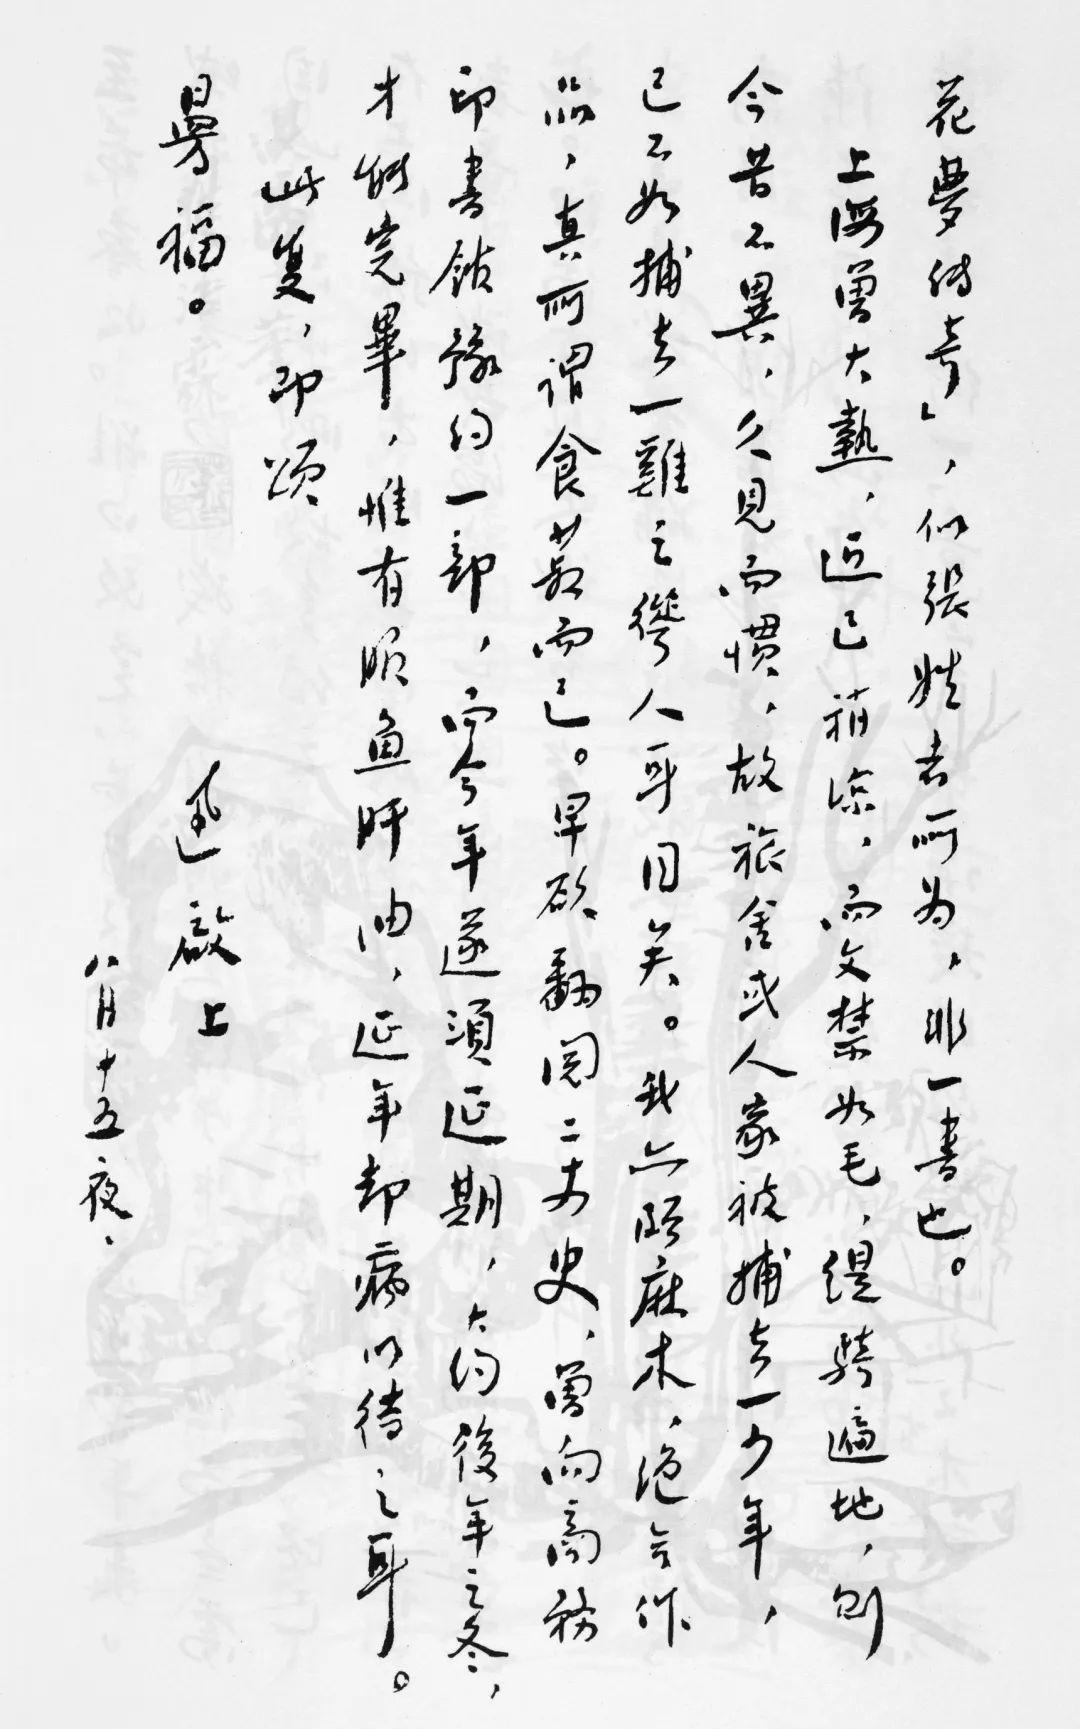 花夢傳奇」，似張姓者所为，非一書也。
上海曾大熱，近已稍涼，而文禁如毛，缇騎遍地，则
今昔不異，久見而慣，故旅舍或人家被捕去一少年，
已不如捕去一雞之耸人耳目矣。我亦颇麻木，绝无作
品，真所謂食菽而已。早欲翻閱二十四史，曾向商務
印書館豫约一部，而今年遂須延期，大约後年之冬，
才能完畢，惟有服鱼肝油，延年却病以待之耳。
此复，即颂
曼福。
迅 啟上
八月十五夜、